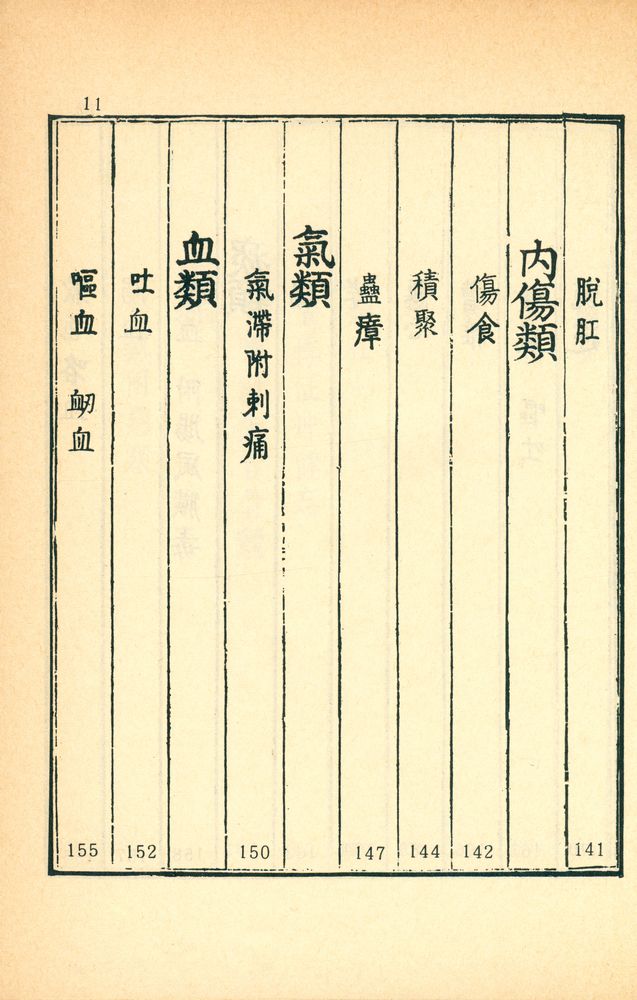 11
脫肛 141
內傷類
傷食 142
積聚 144
蠱瘴 147
氣類
氣滯附刺痛 150
血類
吐血 152
嘔血 衂血 155